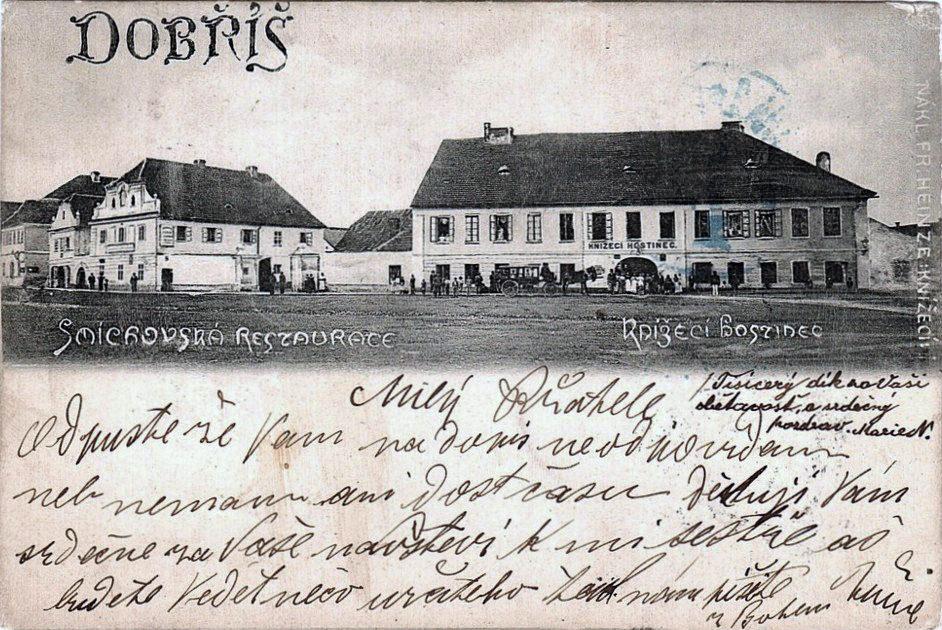 DOBŘÍŠ
NÁKL. FR. HEINZE. KNÍŽECÍ
KNÍŽECÍ HOSTINEC.
Smíchovská restaurace
Knížecí hostinec
Milý Přátele
/Tisícerý dík za Vaši
dětavost, a srdečný
pozdrav. Marie N.
Odpuste že Vam na dopis neodpovidam
neb nemam ani dost času Děkuji Vám
srdečne za Vaše navštevi k mi sestře až
budete Vědět něco určiteho tak nám pište
z Bohem